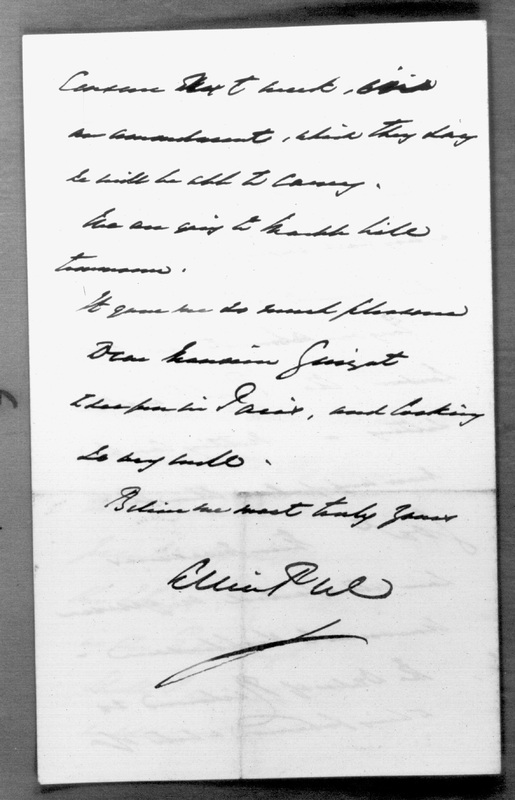 Censure next week, with
an amendment, which they say
he will be able to carry.
We are going to Marble Hill
tomorrow.
It gave me so much pleasure
Dear Monsieur Guizot
to see you in Paris, and looking
so very well.
Believe me most truly yours
Alice Peel